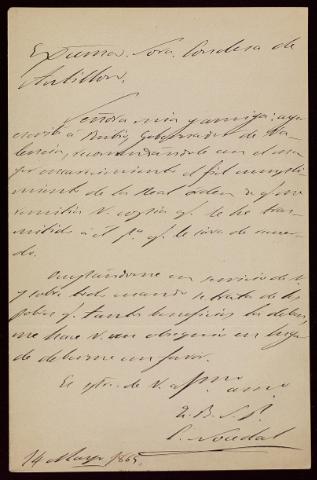 Exma. Sora. Condesa de
Antillon.
Señora mia y amiga: ayer
escribí a Rubio, Gobernador de Va-
lencia, recomendándole con el ma-
yor encarecimiento el fiel cumpli-
miento de la Real orden de q.
V. copia q. le he tras-
mitido á él pª q. le sirva de recuer-
do.
Ocupándome en servicio de V.
y sobre todo cuando se trata de los
pobres q. tantos beneficios les deben,
me hace V. un obsequio en lugar
de deberme un favor.
Es de V. afmo. amo.
Q. B. S. P.
C. Nocedal
14 Marzo 1865.